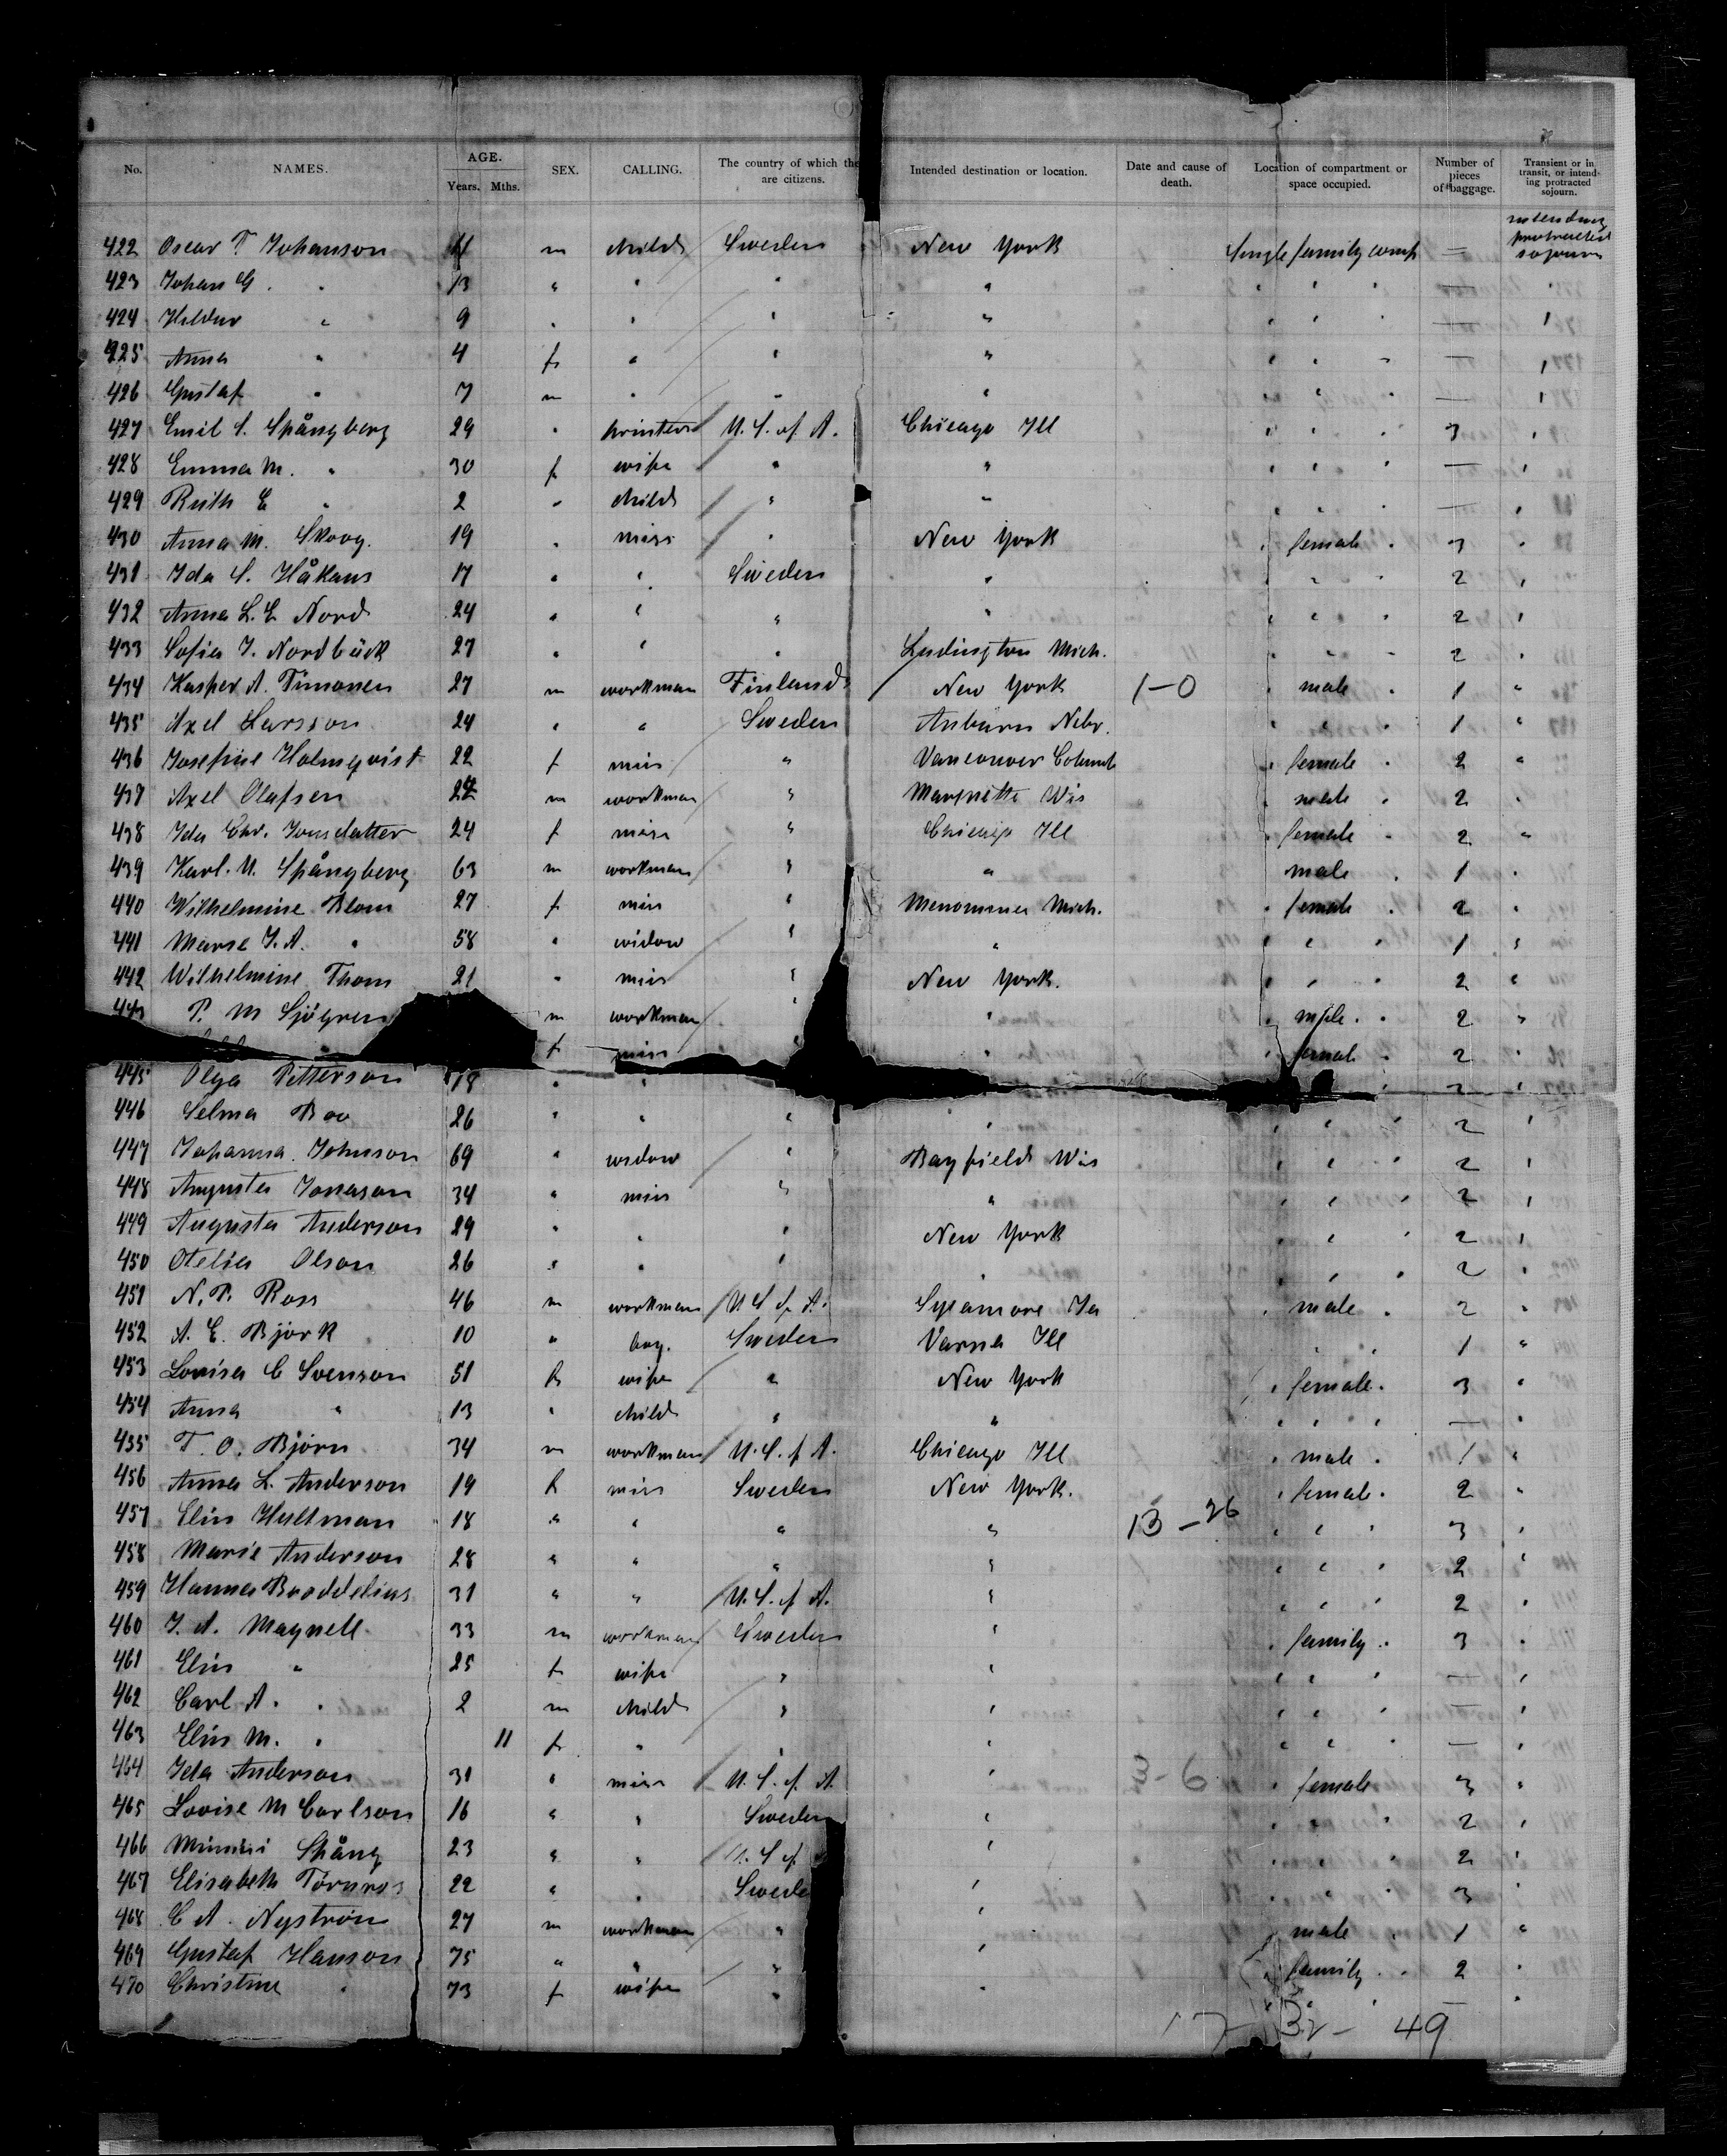 No. NAMES. AGE. Years. Mths. SEX. CALLING. The country of which the are citizens. Intended destination or location. Date and cause of death. Location of compartment or space occupied. Number of pieces of baggage. Transient or in transit, or intending protracted sojourn.
422 Oscar T Johanson m child Sweden New York Single family comp — intending protracted sojourn
423 Johan G. " 13 " " " " " " " — "
424 Hildur " 9 " " " " " " " — "
425 Anna " 4 f " " " " " " — "
426 Gustaf " 7 m " " " " " " — "
427 Emil S. Spångberg 29 " printer U. S. of A. Chicago Ill " " " 3 "
428 Emma M. " 30 f wife " " " " " — "
429 Ruth E " 2 " child " " " " " — "
430 Anna M. Skoog. 19 " miss " New York " female " 3 "
431 Ida S. Håkans 17 " " Sweden " " " " 2 "
432 Anna L. E. Nord 24 " " " " " " " 2 "
433 Sofia J. Nordbäck 27 " " " Ludington Mich. " " " 2 "
434 Kasper A. Timonen 27 m workman Finland New York 1-0 " male " 1 "
435 Axel Larsson 24 " " Sweden Auburn Nebr. " " " 1 "
436 Josefine Holmqvist 22 f miss " Vancouver Columb " female " 2 "
437 Axel Olafsen m workman " Marinette Wis " male " 2 "
438 Ida Chr. Jonsdatter 24 f miss " Chicago Ill " female " 2 "
439 Karl. U. Spångberg 63 m workman " " male " 1 "
440 Wilhelmine Blom 27 f miss " Menominee Mich. " female " 2 "
441 Marie J. A. " 58 " widow " " " " " 1 "
442 Wilhelmine Thom 21 " miss " New York. " " " 2 "
443 P. M Sjögren m workman " " " male. " 2 "
" f miss " " " female " 2 "
445 Olga Petterson 18 " " " 2 "
446 Selma Boo 26 " " " " " " " 2 "
447 Johanna Johnson 69 " widow " Bayfield Wis " " " 2 "
448 Augusta Jonason 34 " miss " " " " " 2 "
449 Augusta Anderson 29 " " " New York " " " 2 "
450 Otelia Olson 26 " " " " " " " 2 "
451 N. P. Ross 46 m workman U S of A. Sycamore Ia " male " 2 "
452 A. E. Bjork 10 " boy. Sweden Varna Ill " " 1 "
453 Lovisa C Svenson 51 f wife " New York " female. 3 "
454 Anna " 13 " child " " " " " — "
455 T. O. Bjorn 34 m workman U. S. of A. Chicago Ill " male " 1 "
456 Anna L. Anderson 19 f miss Sweden New York. " female. 2 "
457 Elin Hultman 18 " " " " 13 - 26 " " " 3 "
458 Marie Anderson 28 " " " " " " " 2 "
459 Hanna Boddelius 31 " " U. S. of A. " " " " 2 "
460 J. A. Magnell 33 m workman Sweden " " family " 3 "
461 Elin " 25 f wife " " " " " — "
462 Carl A. " 2 m child " " " " " — "
463 Elin M. " 11 f " " " " " " — "
464 Ida Anderson 31 " miss U. S. of A " 3-6 " female 3 "
465 Lovise M Carlson 16 " " Sweden " " " " 2 "
466 Spång 23 " " U. S of " " " " 2 "
467 Elisabeth Törnros 22 " " Swede " " " " 3 "
468 C A. Nyström 27 m workman " " male " 1 "
469 Gustaf Hanson 75 " " " " " family " 2 "
470 Christine " 73 f wife " " " " — "
17 32 - 49